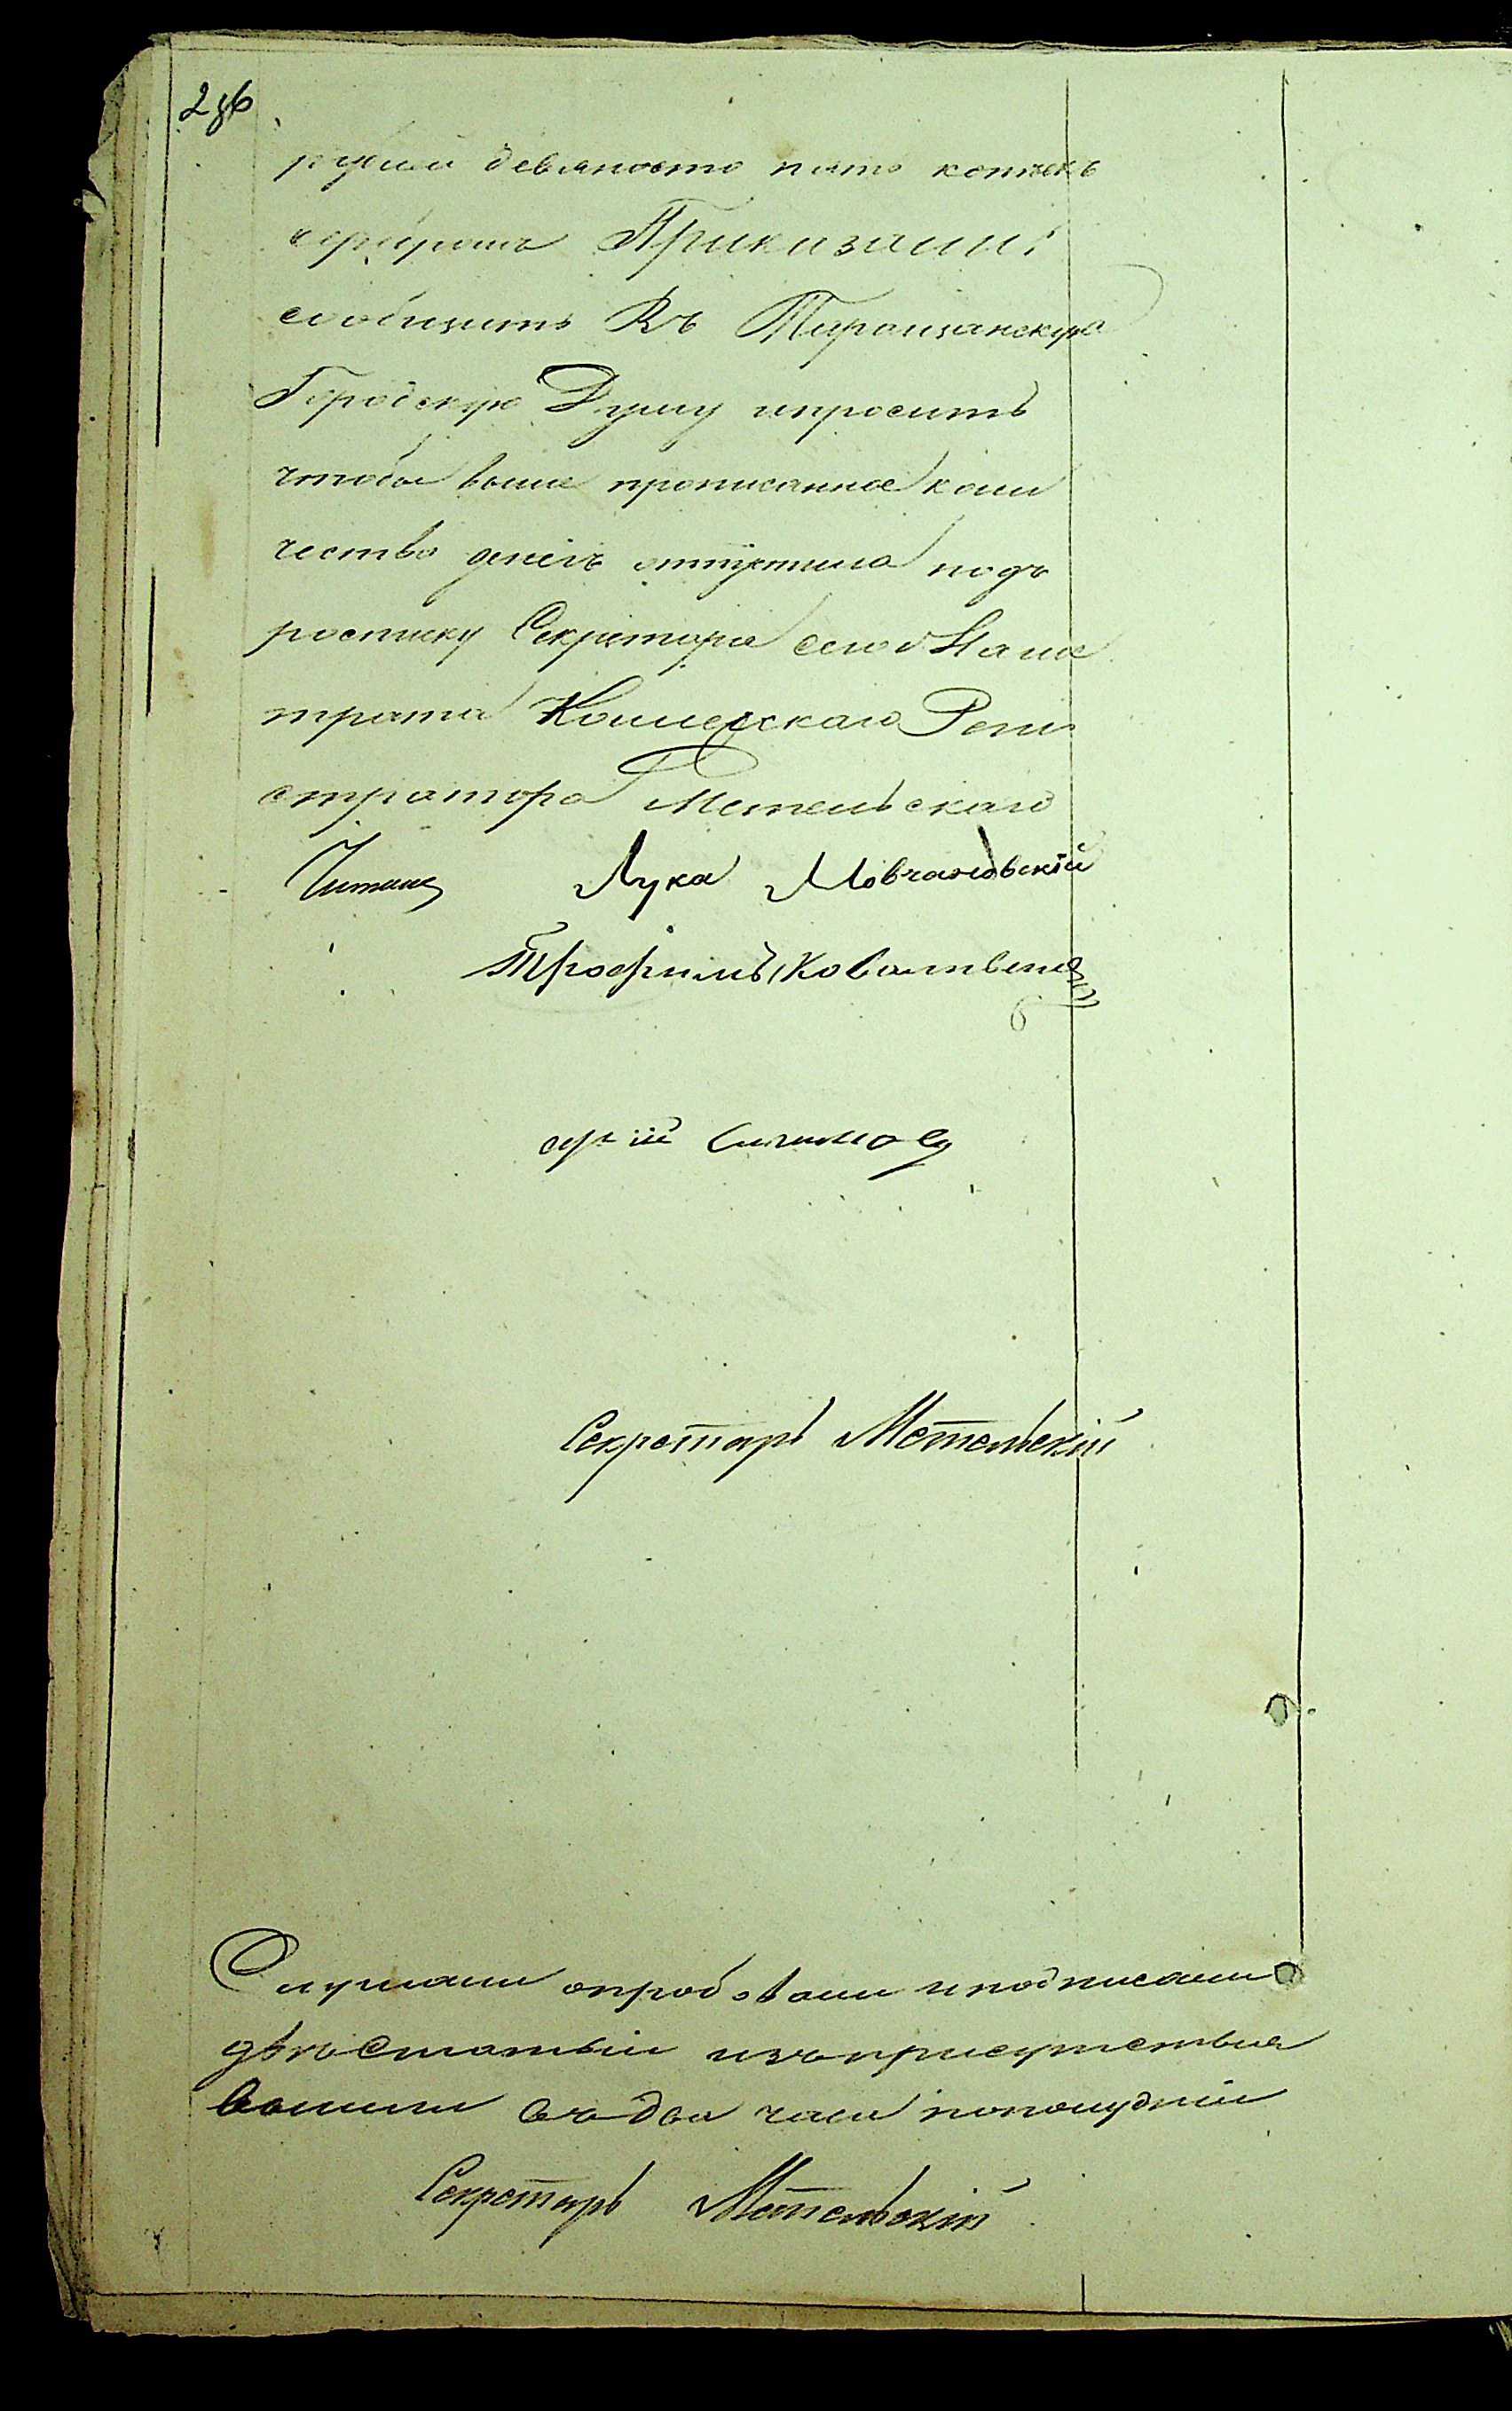 рублей девяносто пять копѣекъ
серебромъ Приказали:
сообщить Въ Таращанскую
Городскую Думу ипросить
чтобы выше прописанное коли
чество денегъ отпустила подъ
росписку Секретаря сего Маги
трата Колежскаго Реги
стратора Метельскаго
Читалъ Лука Мовчановскій
Трофимъ Коваливской
Секретарь Метельскій
Слушали опробовали иподписали
двѣ Статьи изъприсутствия
вышли въ два часа пополудни
Секретарь Метельскій